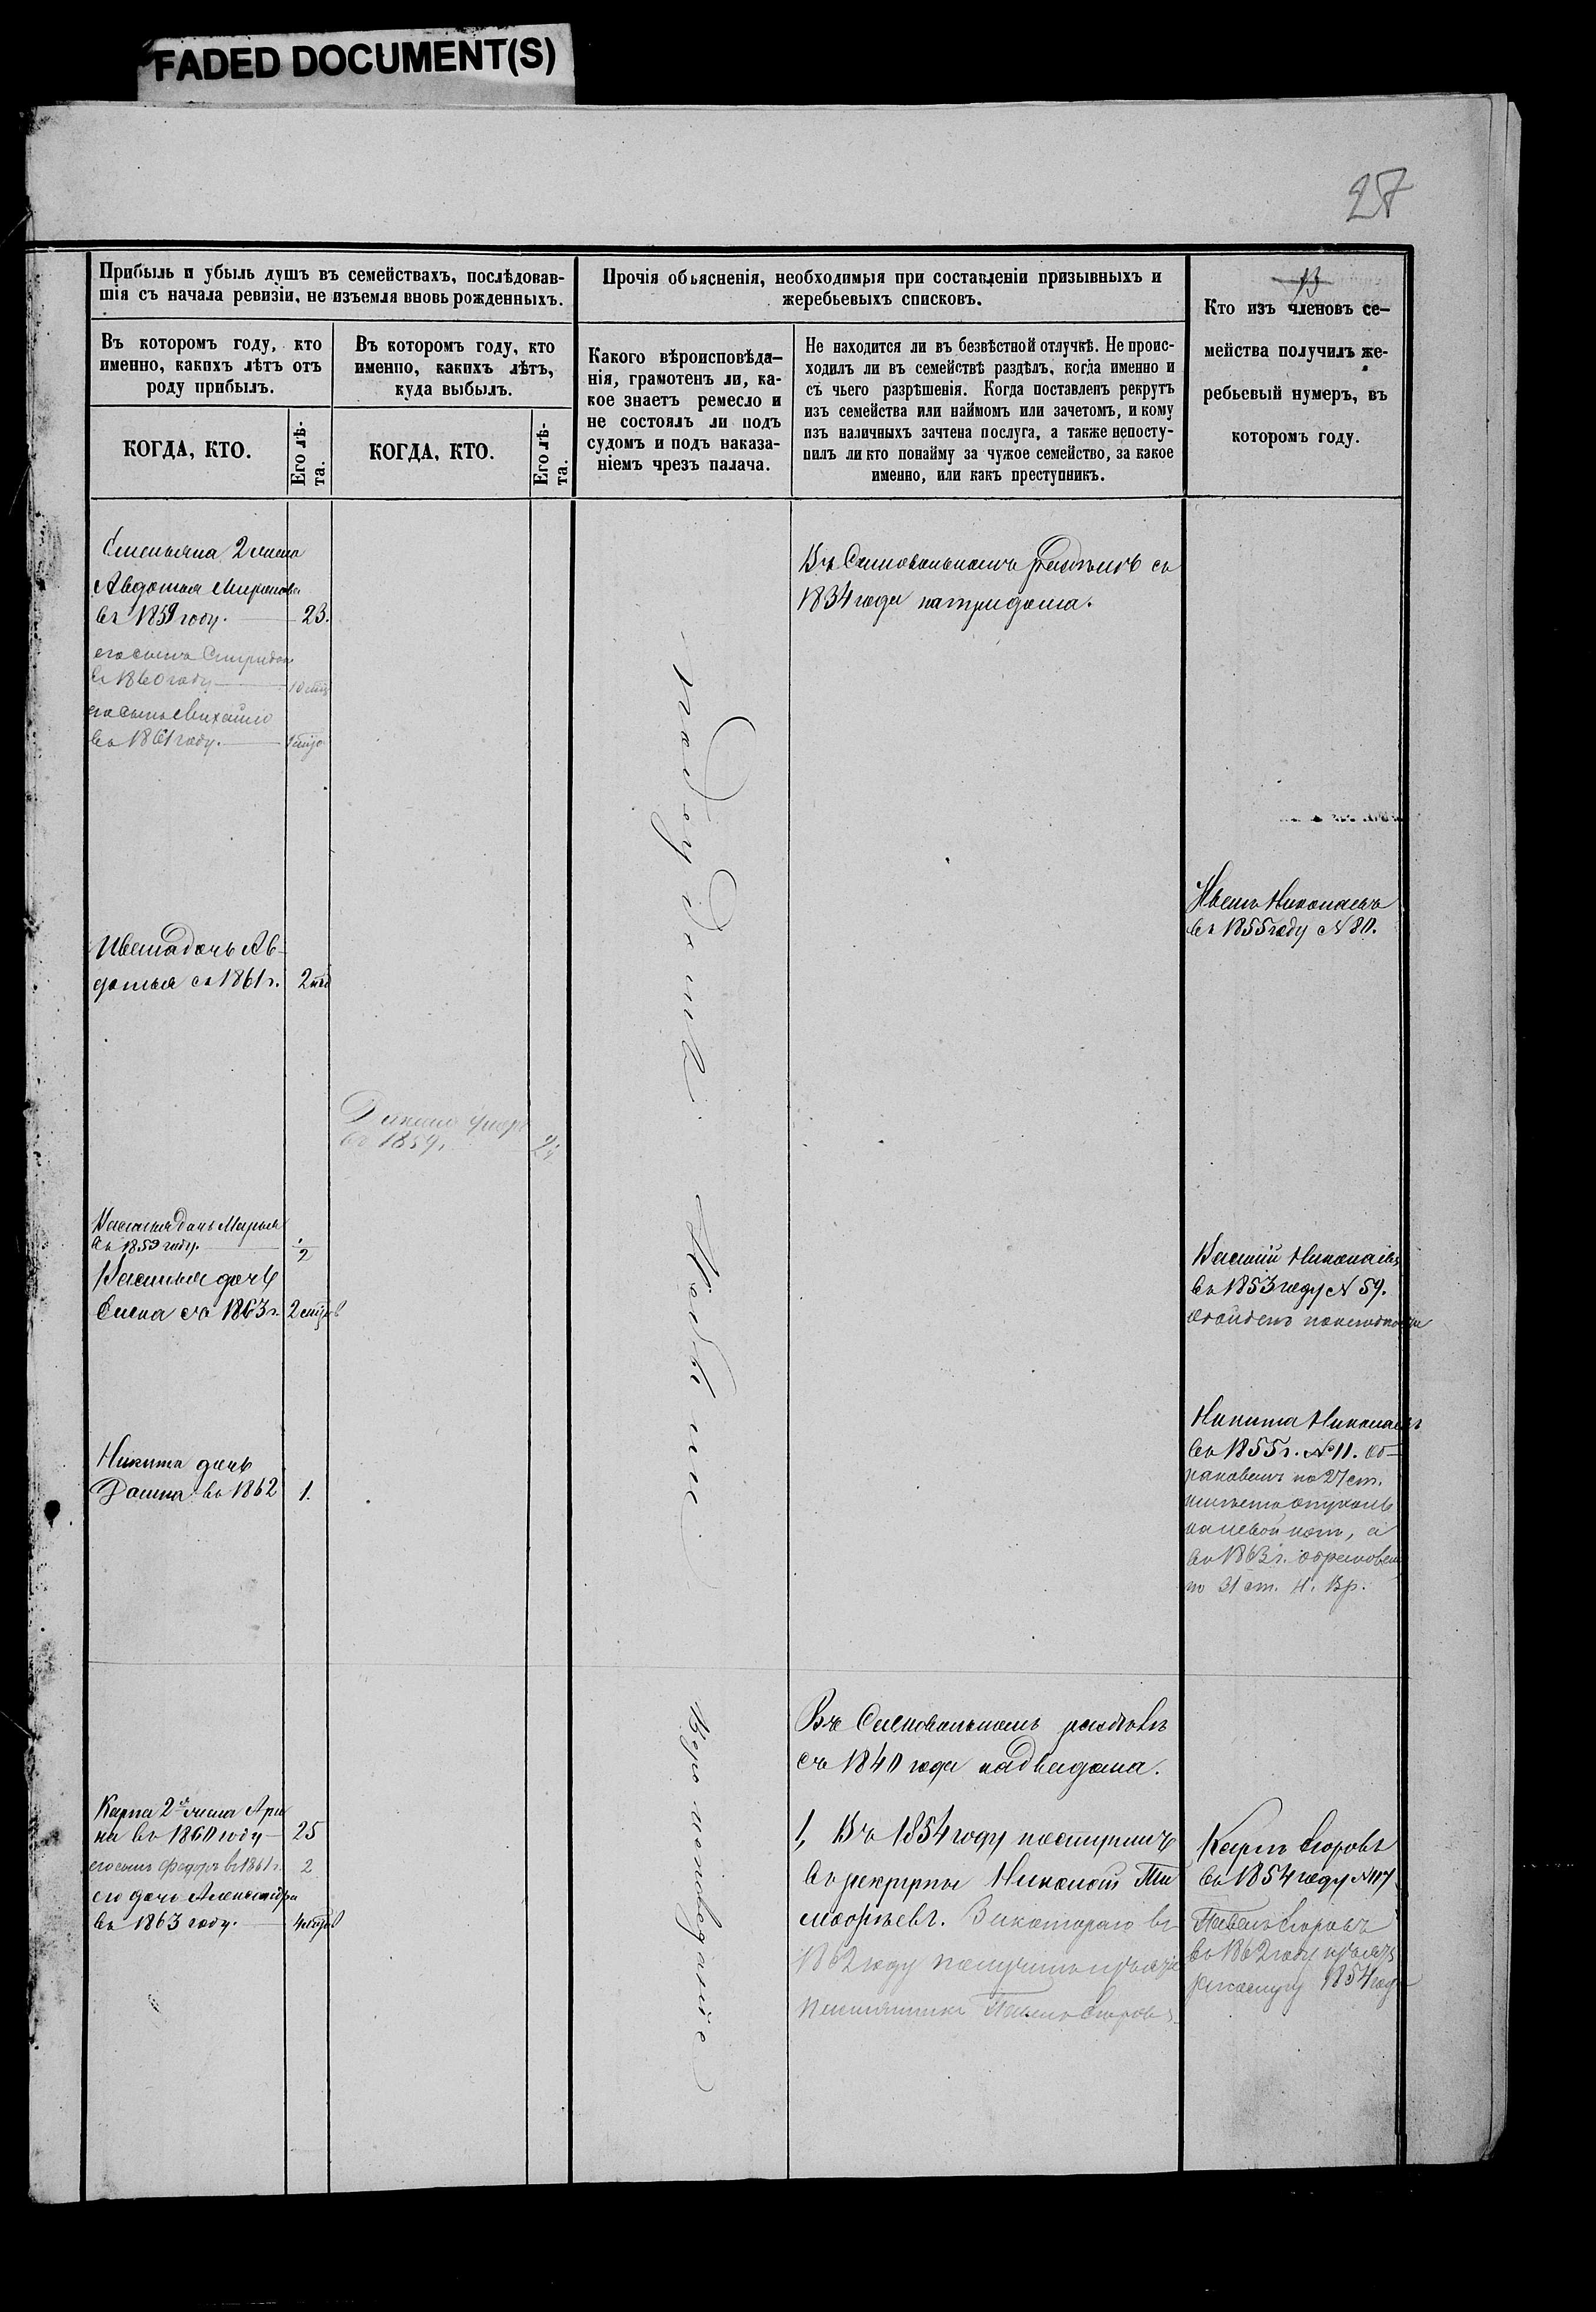 FADED DOCUMENT(S)
27
Прибыль и убыль душъ въ семействахъ, послѣдовав-
шія съ начала ревизіи, не изъемля вновь рожденныхъ.
Въ которомъ году, кто
именно, какихъ лѣтъ отъ
роду прибылъ.
КОГДА, КТО.
Его лѣ-
та.
Въ которомъ году, кто
именно, какихъ лѣтъ,
куда выбылъ.
КОГДА, КТО.
Его лѣ-
та.
Прочія обьясненія, необходимыя при составленіи призывныхъ и
жеребьевыхъ списковъ.
Какого вѣроисповѣда-
нія, грамотенъ ли, ка-
кое знаетъ ремесло и
не состоялъ ли подъ
судомъ и подъ наказа-
ніемъ чрезъ палача.
Не находится ли въ безвѣстной отлучкѣ. Не проис-
ходилъ ли въ семействѣ раздѣлъ, когда именно и
съ чьего разрѣшенія. Когда поставленъ рекрутъ
изъ семейства или наймомъ или зачетомъ, и кому
изъ наличныхъ зачтена послуга, а также непосту-
пилъ ли кто понайму за чужое семейство, за какое
именно, или какъ преступникъ.
13
Кто изъ членовъ се-
мейства получилъ же-
ребьевый нумеръ, въ
которомъ году.
Емельяна 2 жена
Авдотья Миронова
въ 1859 году. 23.
его сынъ Спиридонъ
въ 1860 году
его сынъ Михайло
въ 1861 году.
Ивана дочь Ав-
дотья съ 1861 г.
въ 1859.
Василья дочь Марья
въ 1859 году. 1/2
Василья дочь
Елена съ 1863 г.
Никита дочь
въ 1862 1.
Карпа 2я жена Ари
на въ 1860 году 25
его сынъ Федоръ въ 1861 г. 2
его дочь Александра
въ 1863 году.
Въ самовольномъ раздѣлѣ съ
1834 года на три дома.
Въ самовольномъ раздѣлѣ
съ 1840 года на два дома.
1, Въ 1854 году поступилъ
въ рекруты Николай Ти
мофѣевъ. За котораго въ
1862 году получилъ
Павелъ Егоровъ
Николаевъ
въ 1855 году № 80.
Василій Николаевъ
въ 1853 году № 59.
Никита Николаевъ
въ 1855 г. № 11. об-
ракованъ по 27 ст.
имѣетъ опухоль
на левой ноге, а
въ 1863 г. обракованъ
по 31 ст.
Карпъ Егоровъ
въ 1854 году № 117
Павелъ Егоровъ
въ 1862 году
1854 года